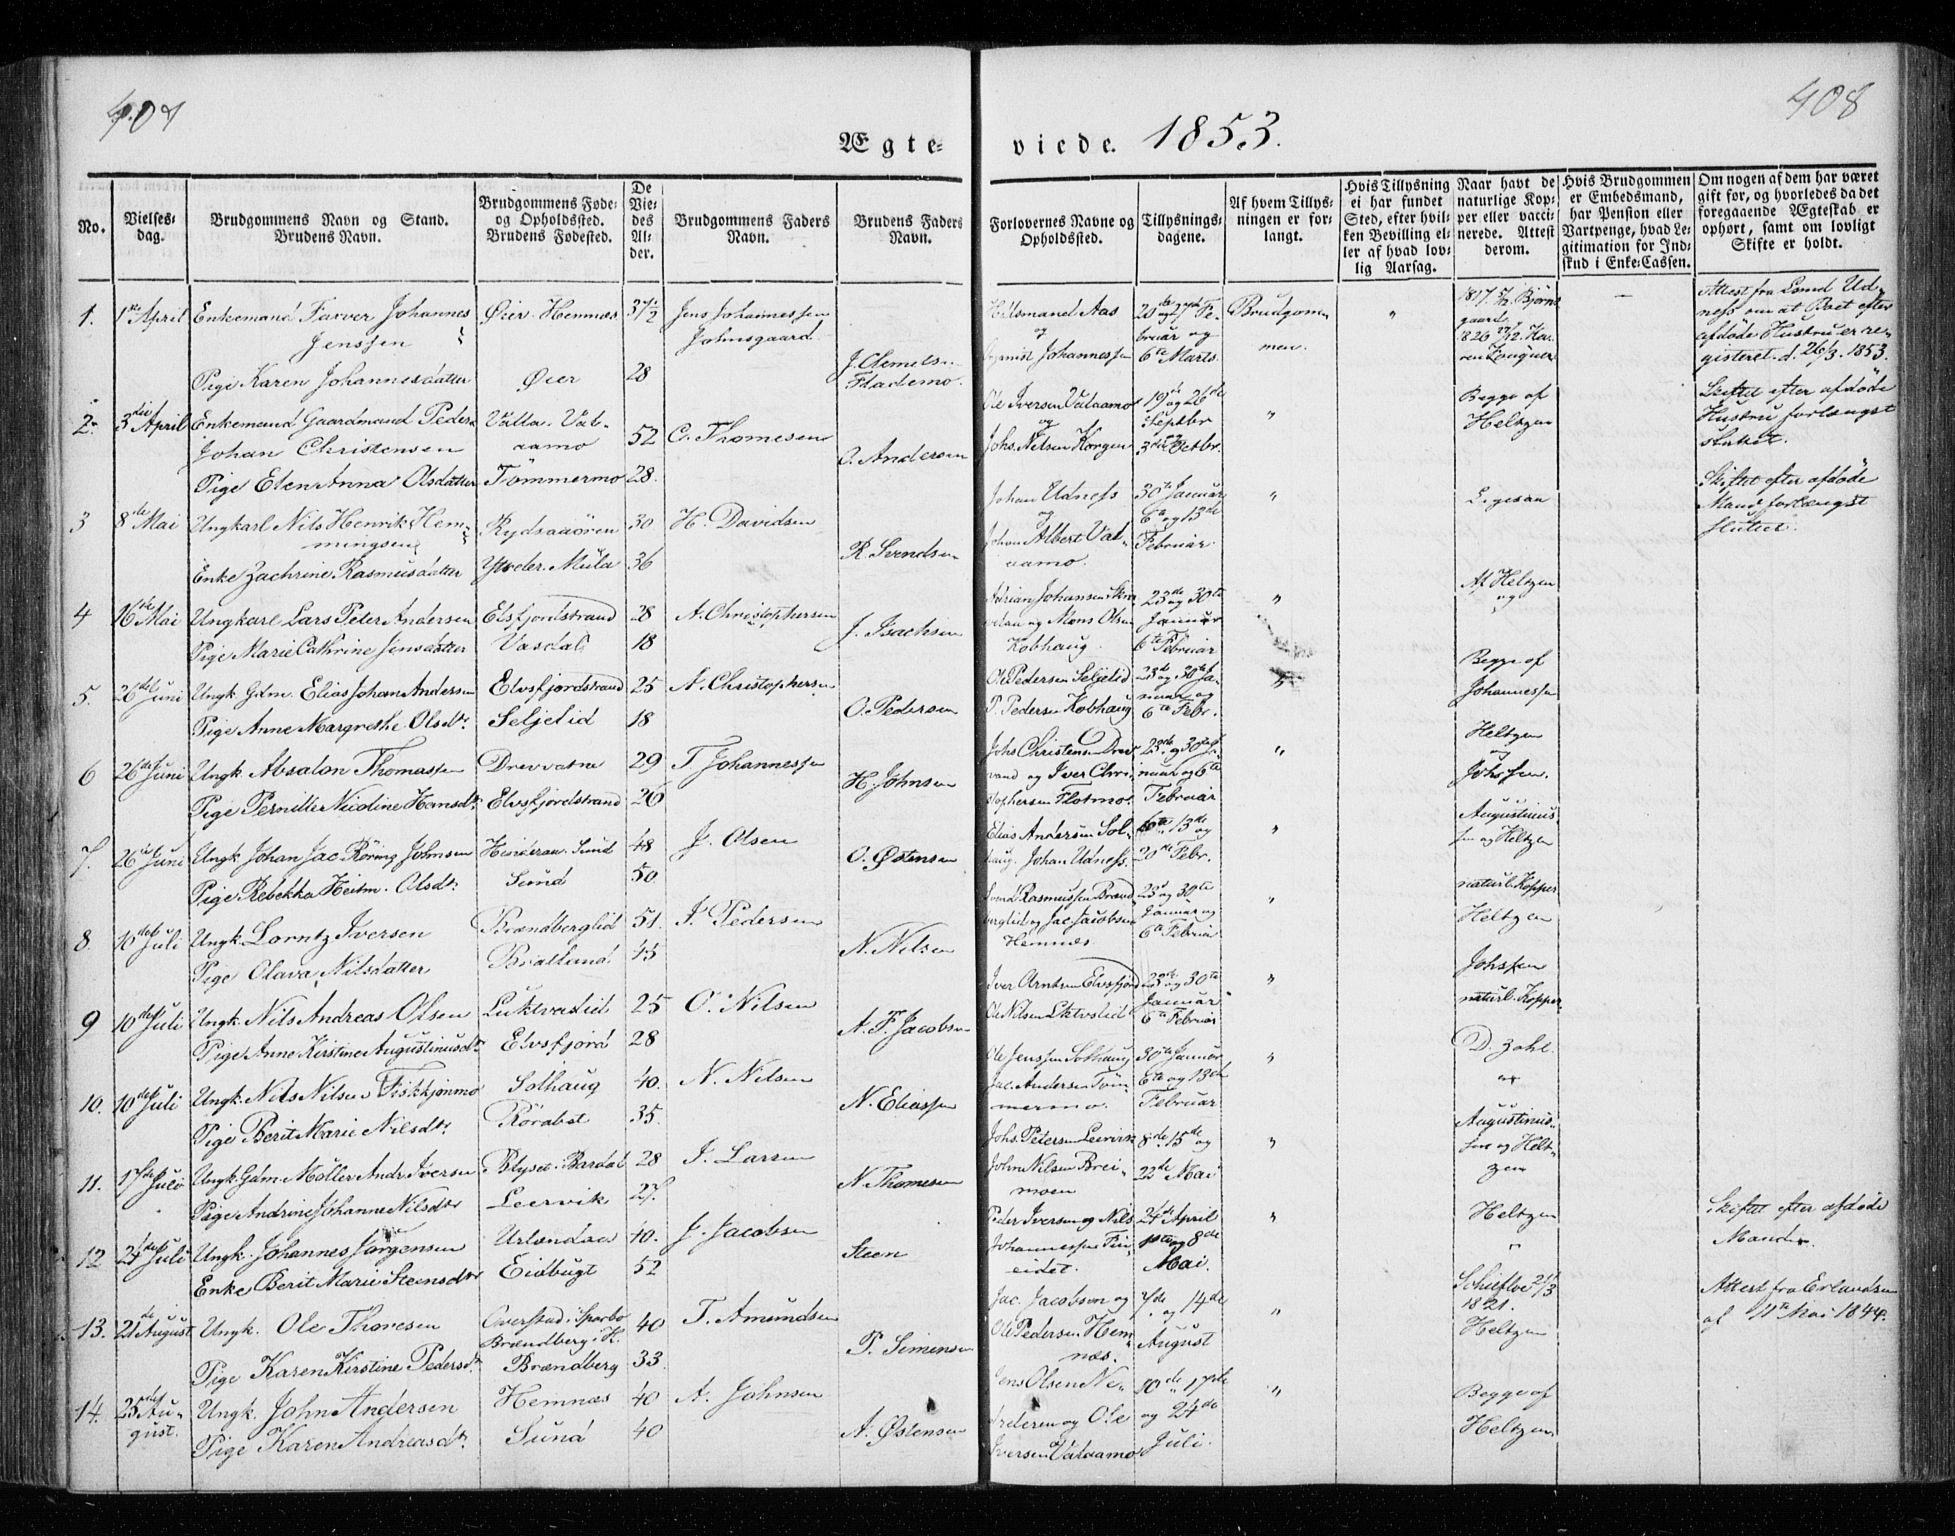 407
408
Ægte- viede. 1853.
No.
Vielses-
dag.
Brudgommens Navn og Stand.
Brudens Navn.
Brudgommens Føde-
og Opholdssted.
Brudens Fødested.
De
Vie-
des
Al-
der.
Brudgommens Faders
Navn.
Brudens Faders
Navn.
Forlovernes Navne og
Opholdssted.
Tillysnings-
dagene.
Af hvem Tillys-
ningen er for-
langt.
Hvis Tillysning
ei har fundet
Sted, efter hvil-
ken Bevilling el-
ler af hvad lov-
lig Aarsag.
Naar havt de
naturlige Kop-
per eller vacci-
nerede. Attest
derom.
Hvis Brudgommen
er Embedsmand,
har Pension eller
Vartpenge, hvad Le-
gitimation for Ind-
skud i Enke-Cassen.
Om nogen af dem har været
gift før, og hvorledes da det
foregaaende Ægteskab er
ophørt, samt om lovligt
Skifte er holdt.
1. 1ste April Enkemand Farver Johannes Øier. Hemnæs 37½ Jens Johannessen
Jenssen Johnsgaard
Pige Karen Johannesdatter Øier 28 J. Clemets.
Flademo.
Hilsmand Aas 20de og 27de Fe- Brudgom- " 1817 Bjørn-
og bruar og men. gaard
Johannessen 6te Marts. 1826
Attest fra Lsmd Ud-
ness om at Boet efter
afdøde Hustru er re-
gisteret d. 26/3. 1853.
2. 3die April Enkemand Gaardmand Peder Valla. Val- 52 C. Thomesen
Johan Christensen aamo O. Andersen
Pige Elen Anna Olsdatter Tømmermo 28.
Ole Iversen Valaamo 19de og 26de " Begge af
og Septbr Heltzen
Johs. Nilsen Korgen 3die Octbr.
Skiftet efter afdøde
Hustru forlængst
sluttet.
3 8de Mai Ungkarl Nils Henrik Hem- Rydsaaøren 30 H. Davidsen
mingsen R. Svendsen
Enke Zachrine Rasmusdatter Ytteder. Mula 36
Johan Udness 30te Januar " Ligesaa
og 6te og 13de
Johan Albert Val- Februar.
aamo.
Skiftet efter afdøde
Mand forlængst
sluttet.
4 16de Mai Ungkarl Lars Peter Andersen Elsfjordstrand 28 A. Christophersen
Pige Marie Cathrine Jensdatter Vasdal 18 J. Isachsen
Adrian Johansen 23de og 30te " Af Heltzen
og Mons Olsen Januar og
Kobhaug. 6te Februar
5. 26de Juni Ungk. Gdm. Elias Johan Andersen Elvsfjordstrand 25 A. Christophersen
Pige Anne Margrethe Olsdtr. Seljelid 18 O. Pedersen
Ole Pedersen Seljelid 23de og 30te Ja- " Begge af
P. Pedersen Kobhaug nuar og Johannessen
6te Febr.
6 26de Juni Ungk. Absalon Thomassen Drevvatne 29 T. Johannessen
Pige Pernille Nicoline Hansdtr. Elvsfjordstrand 26 H. Johnsen
Johs Christensen Drev- 23de og 30te Ja- " Heltzen
vand og Iver Chri- nuar og 6te og
stophersen Flotmo. Februar Johssen.
7. 26de Juni Ungk. Johan Jac. Røring Johnsen Sund 48 J. Olsen
Pige Rebekka Heitm. Olsdtr. Sund 50 O. Østensen
Elias Andersen Sol- 6te 13de og " Augustinus-
haug. Johan Udness. 20de Febr. sen og Heltzen
8. 10de Juli Ungk. Lorntz Iversen Brændberglid 51. I. Pedersen
Pige Olava Nilsdatter Bratland 45 N. Nilsen
Svend Rasmussen Brænd- 23de og 30te " naturl. Kopper
berglid og Jac. Jacobsen Januar og Heltzen
Hemnæs. 6te Februar
9 10de Juli Ungk. Nils Andreas Olsen Luktvaslid 25 O. Nilsen
Pige Anne Kirstine Augustinusdtr. Elvsfjord 28 A. F. Jacobsen
Iver Arntsen Elvsfjord 23de og 30te " Johssen
Ole Nilsen Januar naturl. Kopper
6te Februar
10. 10de Juli Ungk. Nils Nilsen Fiskkjønmo Solhaug 40. N. Nilsen
Pige Berit Marie Nilsdtr. Rørabet 35. N. Eliassen
Ole Jenssen Solhaug 30te Januar " D. Zahl.
Jac. Andersen Tøm- 6te og 13de
mermo. Februar
11. 17de Juli Ungk. Gdm. Møller Andr. Iversen Blyset. Bardal 28 I. Larsen
Pige Andrine Johanne Nilsdtr Leervik 27. N. Thomesen
Johs. Petersen Leervik 8de 15de og " Augustinus-
John Nilsen Brei- 22de Mai sen og Helt-
moen zen
12 24de Juli Ungk. Johannes Jørgensen Urlandaa 40. J. Jacobsen
Enke Berit Marie Steensdtr Eidbugt 52 Steen
Peder Iversen og Nils 24de April " Heltzen
Johannessen Fin- 1ste og 8de "
eidet. Mai.
Skiftet efter afdøde
Mand.
13. 21de August Ungk. Ole Thoresen Overstad i Sparbo 40 T. Amundsen
Brændberg i H.
Pige Karen Kirstine Pedersdtr. Brændberg 33. P. Simensen
Jac. Jacobsen og 7de og 14de " 21/3
Ole Pedersen Hem- August 1821.
næs. Heltzen
Attest fra Erlandsen
af 11te Mai 1844.
14. 25de Au- Ungk. John Andersen Hemnæs 40 A. Johnsen
gust. Pige Karen Andreasdtr. Sund 40 A. Østensen
Jens Olsen Ne- 10de 17de " Begge af
og Ole og 24de Heltzen.
Iversen Valaamo Juli.